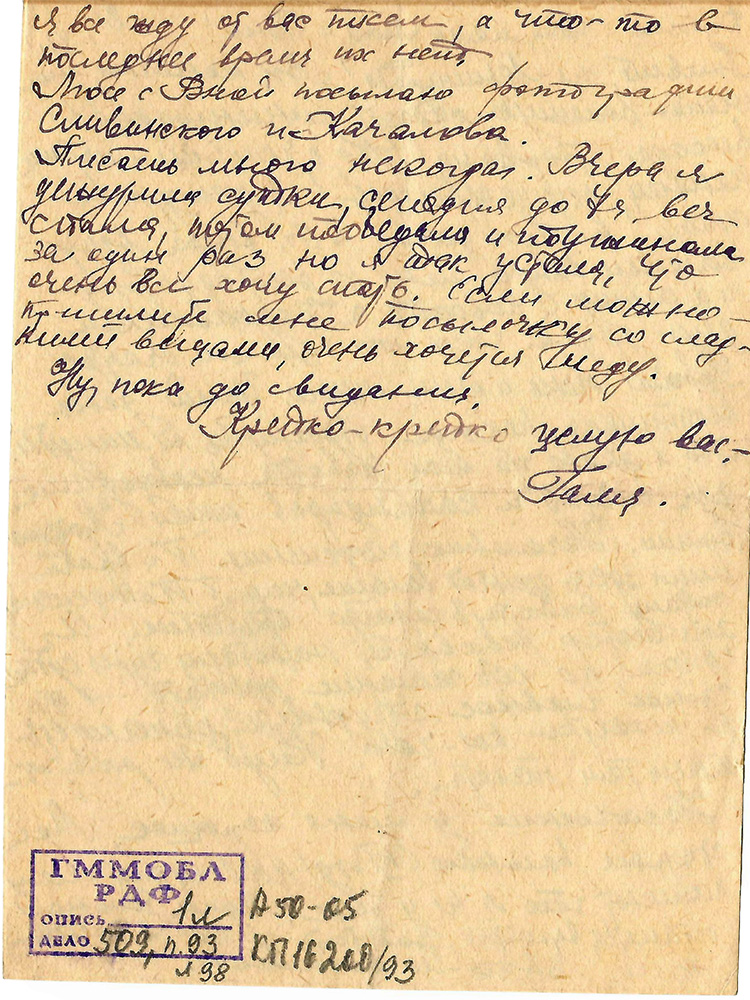 Я все жду от вас писем, а что-то в
последнее время их нет.
посылаю фотографии
Сливинского и Качалова.
Писать много некогда. Вчера я
дежурила сутки, сегодня до 7я веч
спала, потом пообедала и поужинала
за один раз но я так устала, что
очень все хочу спать. Если можно -
пришлите мне посылочку со слад-
кими вещами, очень хочется меду.
Ну, пока до свидания.
Крепко-крепко целую вас.-
Галя.
ГММОБЛ
РДФ
опись 1л
дело 509, п.93
л98
А50-05
КП16200/93